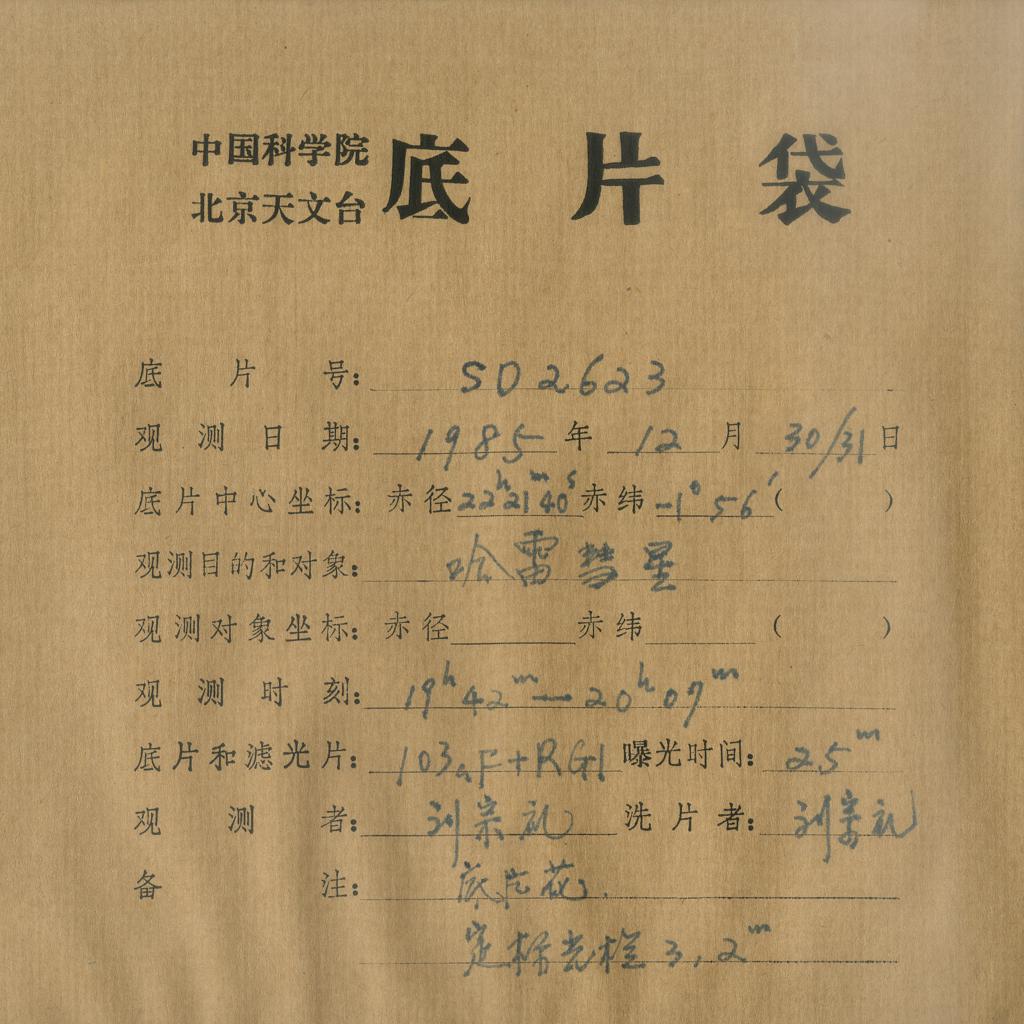 中国科学院
北京天文台 底片袋
底片号: SD2623
观测日期: 1985年12月30/31日
底片中心坐标: 赤径22ʰ21ᵐ40ˢ赤纬-1°56′( )
观测目的和对象: 哈雷彗星
观测对象坐标: 赤径 赤纬 ( )
观测时刻: 19ʰ42ᵐ—20ʰ07ᵐ
底片和滤光片: 103aF+RG1 曝光时间: 25ᵐ
观测者: 刘宗礼 洗片者: 刘宗礼
备注: 底片花了.
定标光栏3,2ᵐ